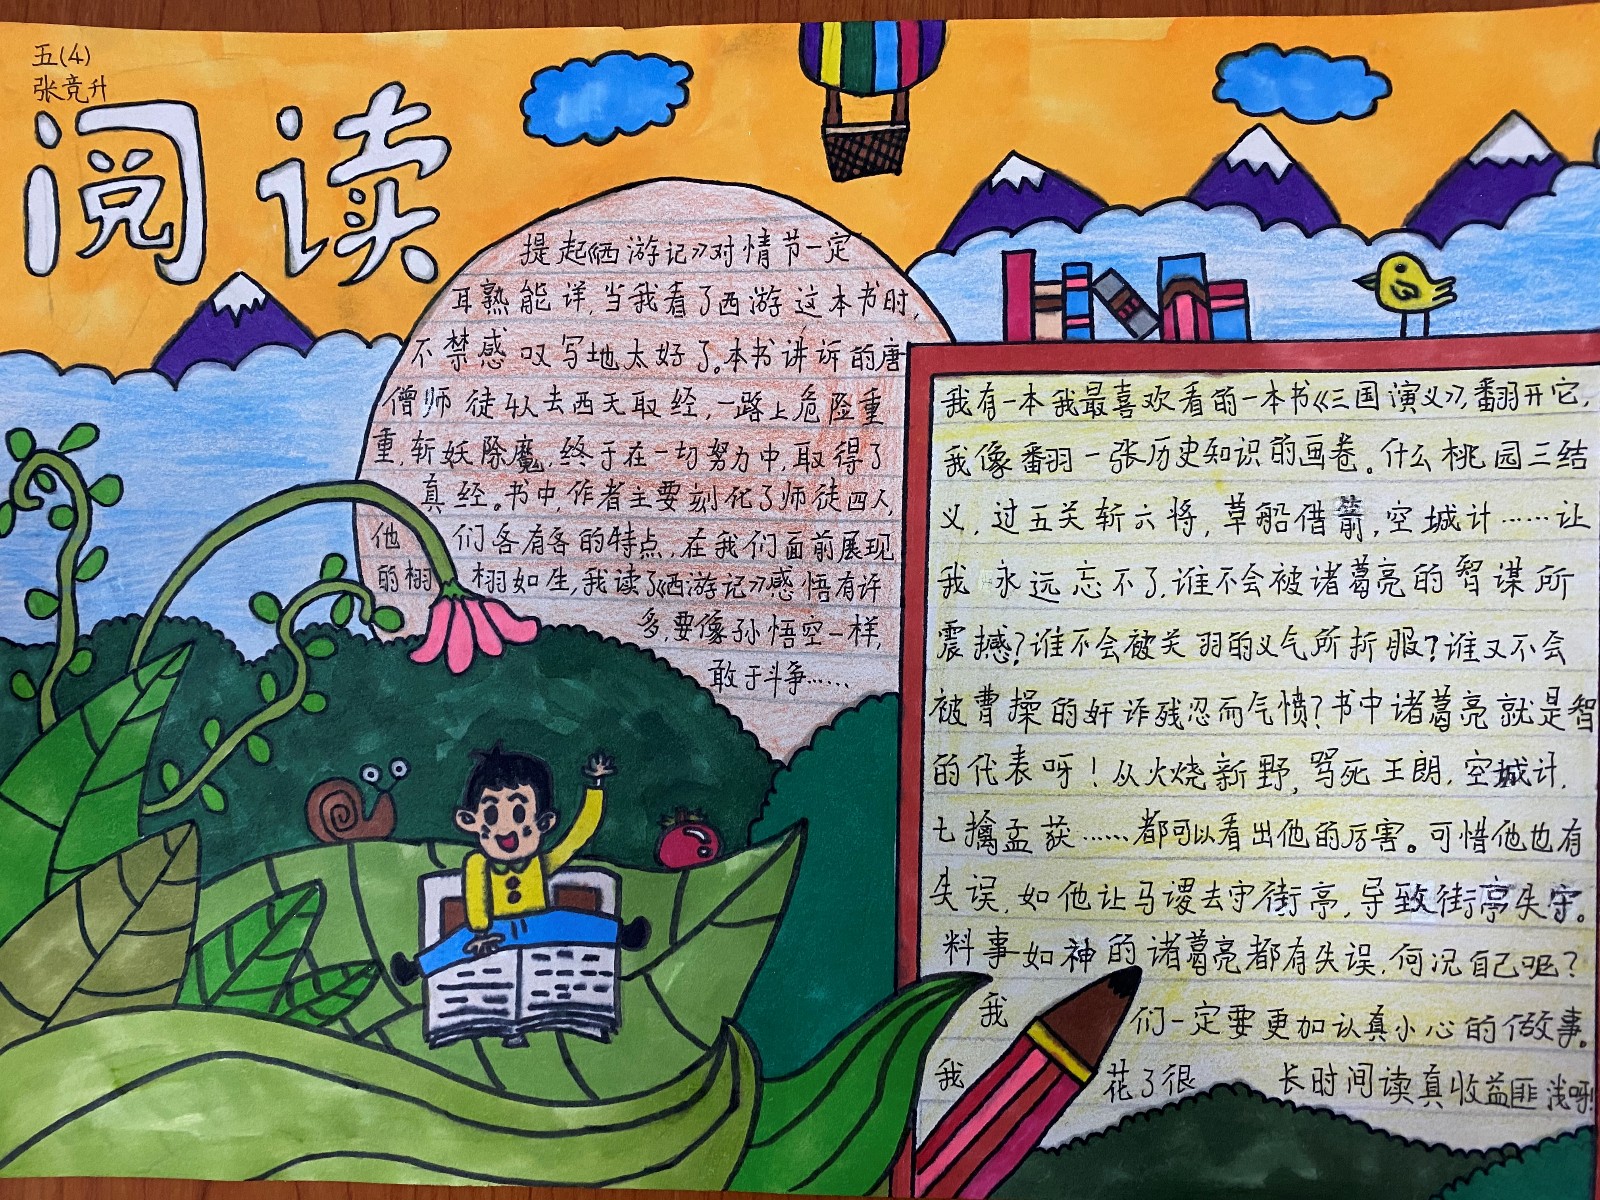 五(4)
张竞升
阅读
提起《西游记》对情节一定
耳熟能详,当我看了西游这本书时,
不禁感叹写地太好了。本书讲诉的唐
僧师徒4人去西天取经,一路上危险重
重,斩妖除魔,终于在一切努力中,取得了
真经。书中,作者主要刻化了师徒四人,
他们各有各的特点,在我们面前展现
的栩栩如生,我读了《西游记》感悟有许
多,要像孙悟空一样,
敢于斗争……
我有一本我最喜欢看的一本书《三国演义》,翻开它,
我像翻一张历史知识的画卷。什么桃园三结
义,过五关斩六将,草船借箭,空城计……让
我永远忘不了,谁不会被诸葛亮的智谋所
震撼?谁不会被关羽的义气所折服?谁又不会
被曹操的奸诈残忍而气愤?书中诸葛亮就是智
的代表呀!从火烧新野,骂死王朗,空城计,
七擒孟获……都可以看出他的厉害。可惜他也有
失误,如他让马谡去守街亭,导致街亭失守。
料事如神的诸葛亮都有失误,何况自己呢?
我们一定要更加认真小心的做事。
我花了很长时间读真收益匪浅呀!